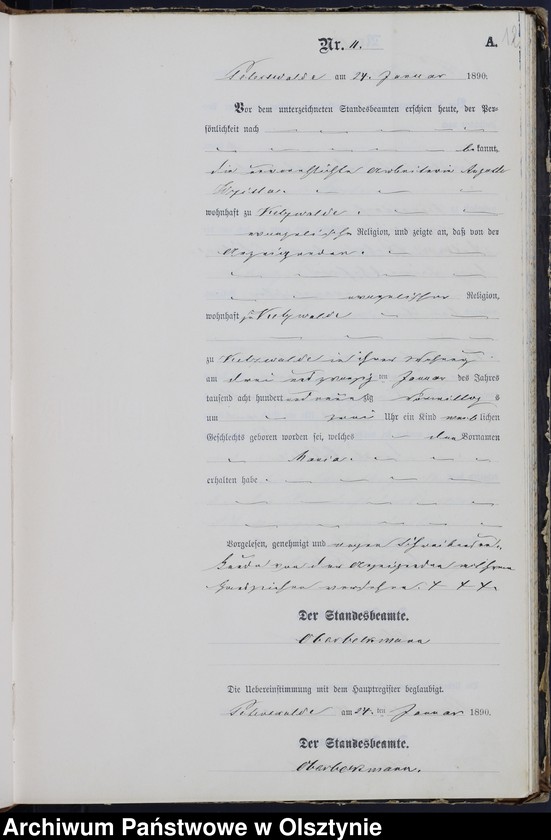 Nr. 11. A. 12
am 24. Januar 1890.
Vor dem unterzeichneten Standesbeamten erschien heute, der Per-
sönlichkeit nach
bekannt,
die unverehelichte Arbeiterin Auguste
wohnhaft zu
evangelischer Religion, und zeigte an, daß von der
Anzeigenden.
evangelischer Religion,
wohnhaft zu
zu in ihrer Wohnung
am drei und zwanzig ten Januar des Jahres
tausend acht hundert und neunzig Vormittags
um zwei Uhr ein Kind weiblichen
Geschlechts geboren worden sei, welches den Vornamen
Maria.
erhalten habe
Vorgelesen, genehmigt und wegen Schreibens
von der Anzeigenden mit ihrem
Handzeichen versehen. + + +.
Der Standesbeamte.
Oberbekmann
Die Uebereinstimmung mit dem Hauptregister beglaubigt.
am 24. ten Januar 1890.
Der Standesbeamte.
Oberbekmann.
Archiwum Państwowe w Olsztynie